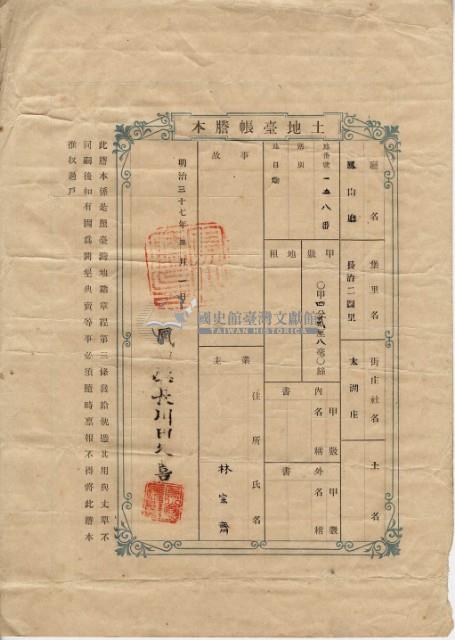 土地臺帳謄本
廳名
鳳山廳
堡里名
長治二圖里
街庄社名
大湖庄
土名
地番號
一五八番
等則
地目
甲數
〇甲四分貳厘八毫〇絲
地租
內書
名稱
甲數
外書
名稱
甲數
事故
業主
住所氏名
林宗齊
明治三十七年
長川田久喜
此謄本係是照臺灣地籍章程第三條發給執憑其用與丈單不
同嗣後如有關於業典賣等事必須隨時稟報不得將此謄本
推收過戶
國史館臺灣文獻館
TAIWAN HISTORICA